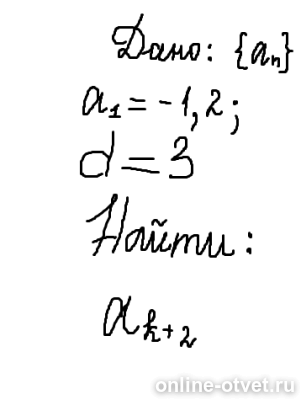 Дано: {aₙ}
a₁ = -1,2;
d = 3
Найти:
aₖ₊₂
online-otvet.ru